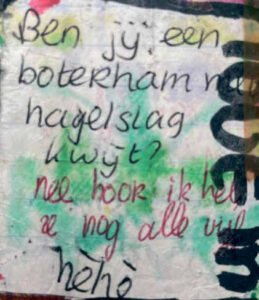 Ben jij een
boterham met
hagelslag
kwijt?
nee hoor ik heb
ze nog alle vijf
hèhè